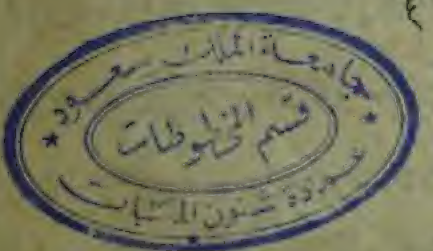 ٤
جامعة الملك سعود
قسم المخطوطات
عمادة شئون المكتبات